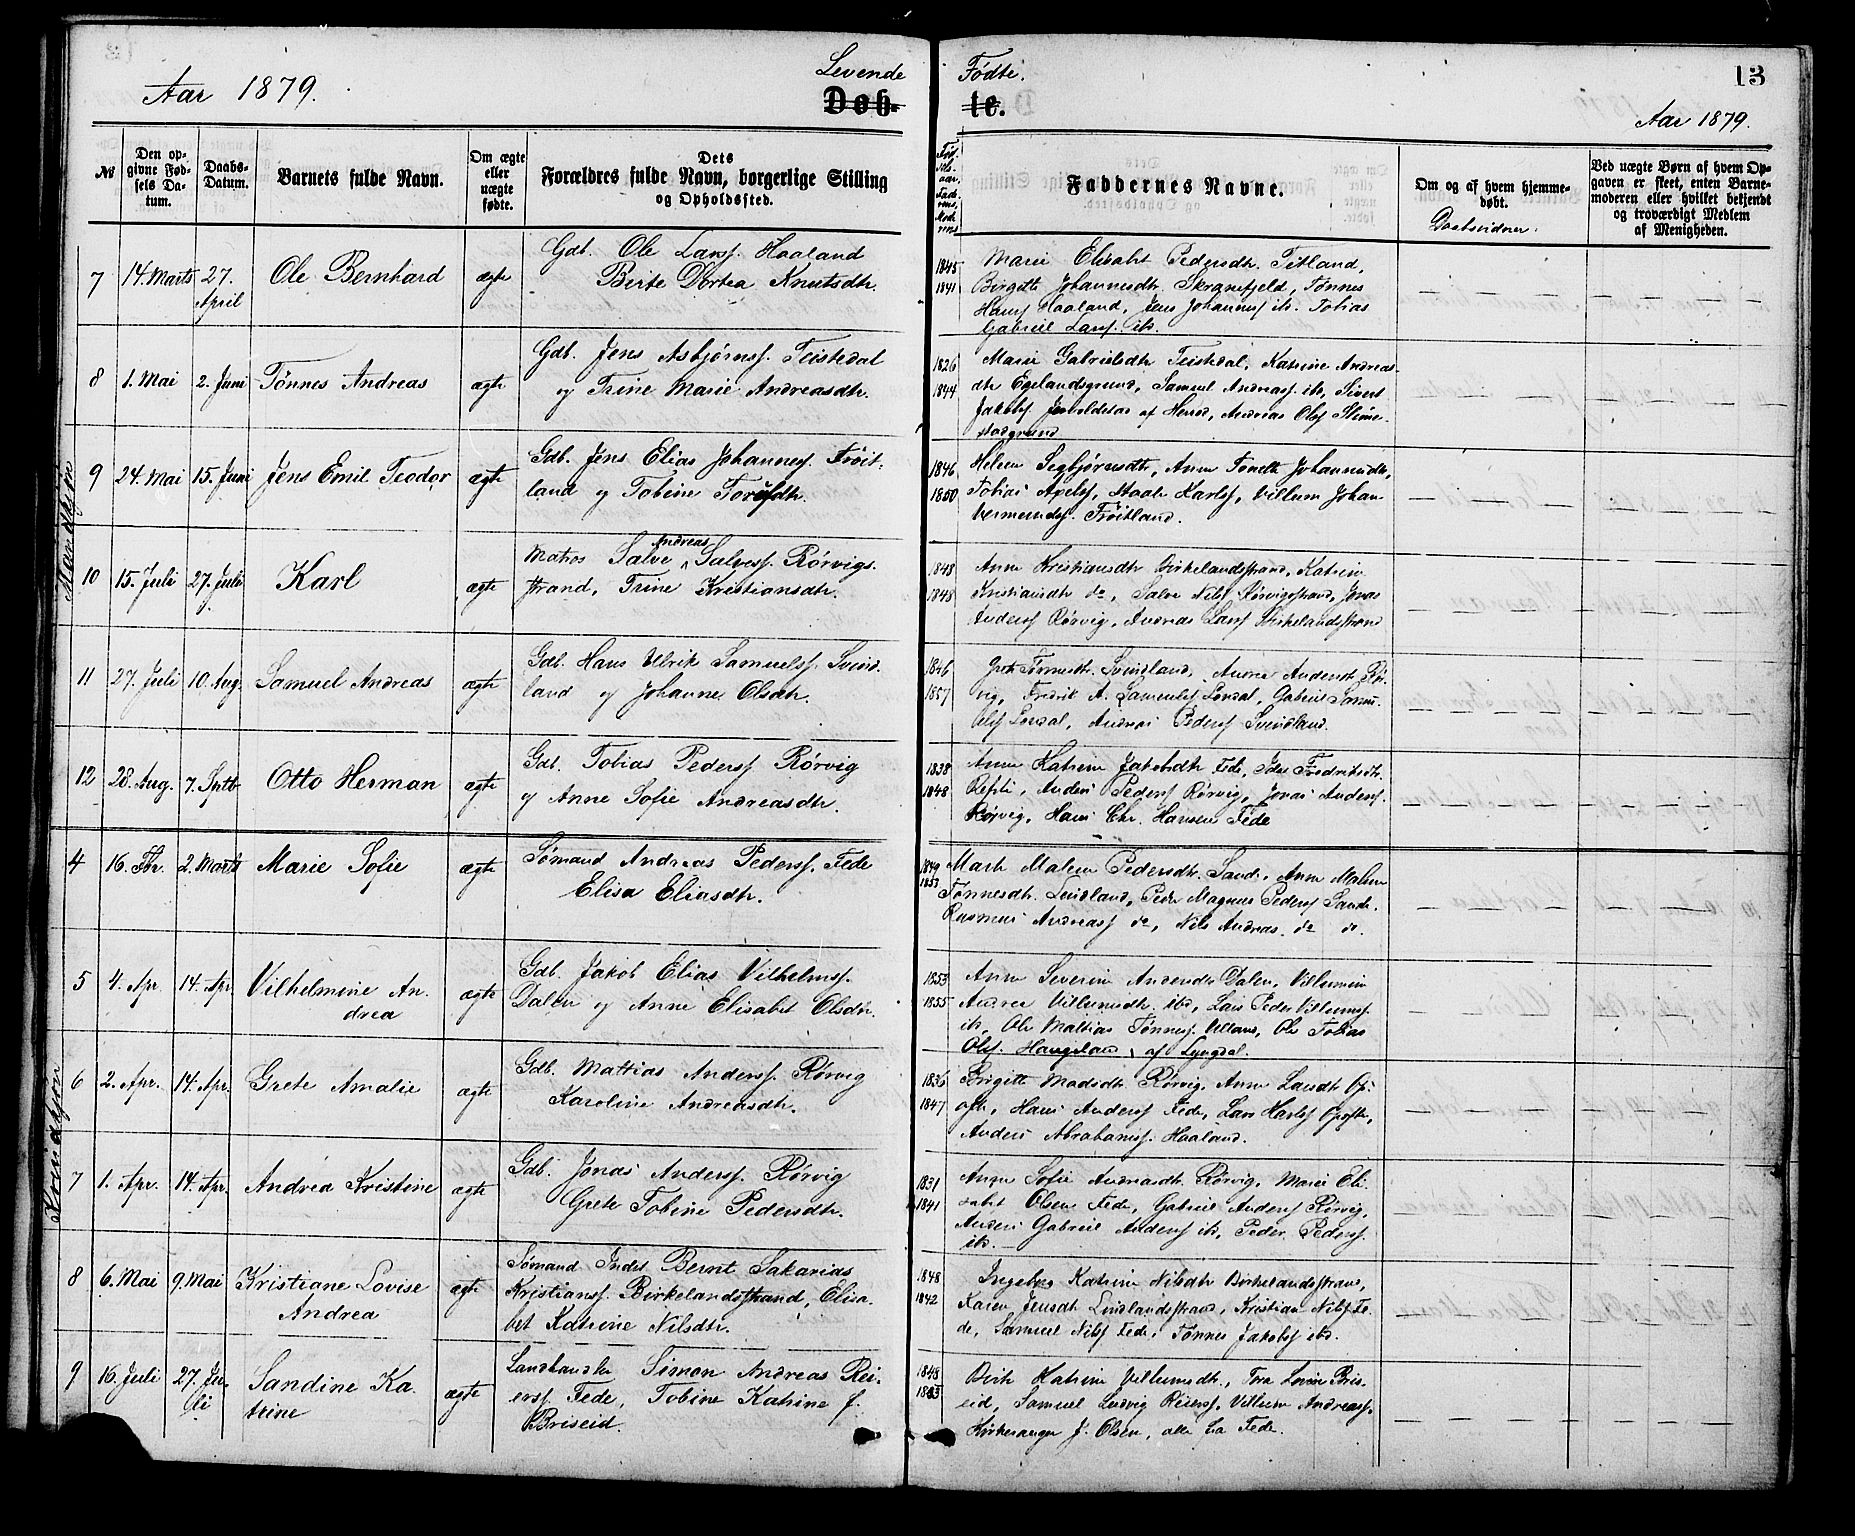 Levende Fødte.
13
Aar 1879.
Døb- te.
Aar 1879.
№
Den op-
givne Fød-
sels Da-
tum.
Daabs-
Datum.
Barnets fulde Navn.
Om ægte
eller
uægte
fødte.
Dets
Forældres fulde Navn, borgerlige Stilling
og Opholdssted.
Faddernes Navne.
Om og af hvem hjemme-
døbt.
Daabsvidner.
Ved uægte Børn af hvem Op-
gaven er skeet, enten Barne-
moderen eller hvilket bekjendt
og troværdigt Medlem
af Menigheden.
Mandkjøn
7 14. Marts 27. April Ole Bernhard ægte
Gdb. Ole Larsf. Haaland
Birte Dortea Knutsdtr.
1845
1841
Marie Elisabt Pedersdtr. Titland,
Birgitte Johannesdtr. Skranefjeld, Tønnes
Hansf Haaland, Jens Johannesf ib. Tobias
Gabriel Larsf. ib.
8 1. Mai 2. Juni Tønnes Andreas ægte
Gdb. Jens Asbjørnsf. Teistedal
og Trine Marie Andreasdtr.
1826
1844
Marie Gabrielsdtr Teistedal, Katrine Andreas-
dtr Egelandsgrund, Samuel Andreasf. ib, Sivert
Jakobsf af Herred, Andreas Olsf
9 24. Mai 15. Juni Jens Emil Teodor ægte
Gdb. Jens Elias Johannesf. Frøit-
land og Tobine Torisdtr.
1846
1850
Helene Segbjørnsdtr, Anne Tonette Johannesdtr,
Tobias Apelsf, Staale Karlsf, Villum Johan
Frøitland.
10 15. Juli 27. Juli Karl ægte
Matros Salve Andreas Salvesf. Rørvig-
strand, Trine Kristiansdtr.
1848
1848
Anne Kristiansdtr Birkelandstrand, Katrine
Kristiansdtr do, Salve Nilsf Rørvigstrand, Jonas
Andersf Rørvig, Andreas Larsf Birkelandstrand
11 27. Juli 10. Aug. Samuel Andreas ægte
Gdb. Hans Ulrik Samuelsf. Svind-
land og Johanne Olsdtr.
1846
1857
Tønnesdtr. Svindland, Andersdt Rør-
vig, Fredrik A. Samuelsf Londal, Gabriel Samu-
elsf Londal, Andreas Pedersf Svindland.
12 28. Aug. 7. Sptb Otto Herman ægte
Gdb. Tobias Pedersf Rørvig
og Anne Sofie Andreasdtr.
1838
1848
Anne Katrine Jakobsdtr Fede, Fredriksdtr.
Refsti, Anders Pedersf Rørvig, Jonas Andersf.
Rørvig, Hans Chr. Hansen Fede
Kvindkjøn
4 16. Fbr. 2. Marts Marie Sofie ægte
Sømand Andreas Pedersf. Fede
Elisa Eliasdtr.
1849
1853
Marte Malene Pedersdtr. Sande, Anne Malene
Tønnesdtr. Lindland, Peder Magnus Pedersf Sande.
Rasmus Andreasf do, Nils Andreas. do do.
5 4. Apr. 14. Apr. Vilhelmine An-
drea ægte
Gdb. Jakob Elias Vilhelmsf.
Dalen og Anne Elisabet Olsdtr.
1853
1855
Anne Severine Andersdtr Dalen, Villumine
Andrea Villumsdtr. ibd, Lars Peder Villumsf.
ib, Ole Mattias Tønnesf. Ole Tobias
Olsf. Haugeland af Lyngdal.
6 2. Apr. 14. Apr. Grete Amalie ægte
Gdb. Mattias Andersf. Rørvig
Karoline Andreasdtr.
1836
1847
Birgitte Madsdtr Rørvig, Anne Larsdtr Op-
ofte, Hans Andersf Fede, Lars Karlsf Opofte,
Anders Abrahamsf. Haaland.
7 1. Apr. 14. Apr. Andrea Kristine ægte
Gdb. Jonas Andersf. Rørvig
Grete Tobine Pedersdtr.
1831
1841
Anne Sofie Andreasdtr. Rørvig, Marie Eli-
sabet Olsen Fede, Gabriel Andersf Rørvig,
Anders Gabriel Andersf ib, Peder Pedersf.
ib.
8 6. Mai 9. Mai Kristiane Lovise
Andrea ægte
Sømand Inds. Bernt Sakarias
Kristiansf. Birkelandstrand, Elisa-
bet Katrine Nilsdtr.
1848
1842
Ingeborg Katrine Nilsdtr Birkelandstrand,
Karen Jensdtr Lindlandstrand, Kristian Nilsf Fe-
de, Samuel Nilsf Fede, Tønnes Jakobsf ib.
9 16. Juli 27. Ju-
li Sandine Ka-
trine ægte
Landhandler Simon Andreas Rei-
ersf Fede, Tobine Katrine f.
Briseid.
1843
Birte Katrine Villumsdtr., Tora Lovise Bris-
eid, Samuel Ludvig Reiersf, Villum Andreasf.
Kirkesanger J. Olsen, alle fra Fede.